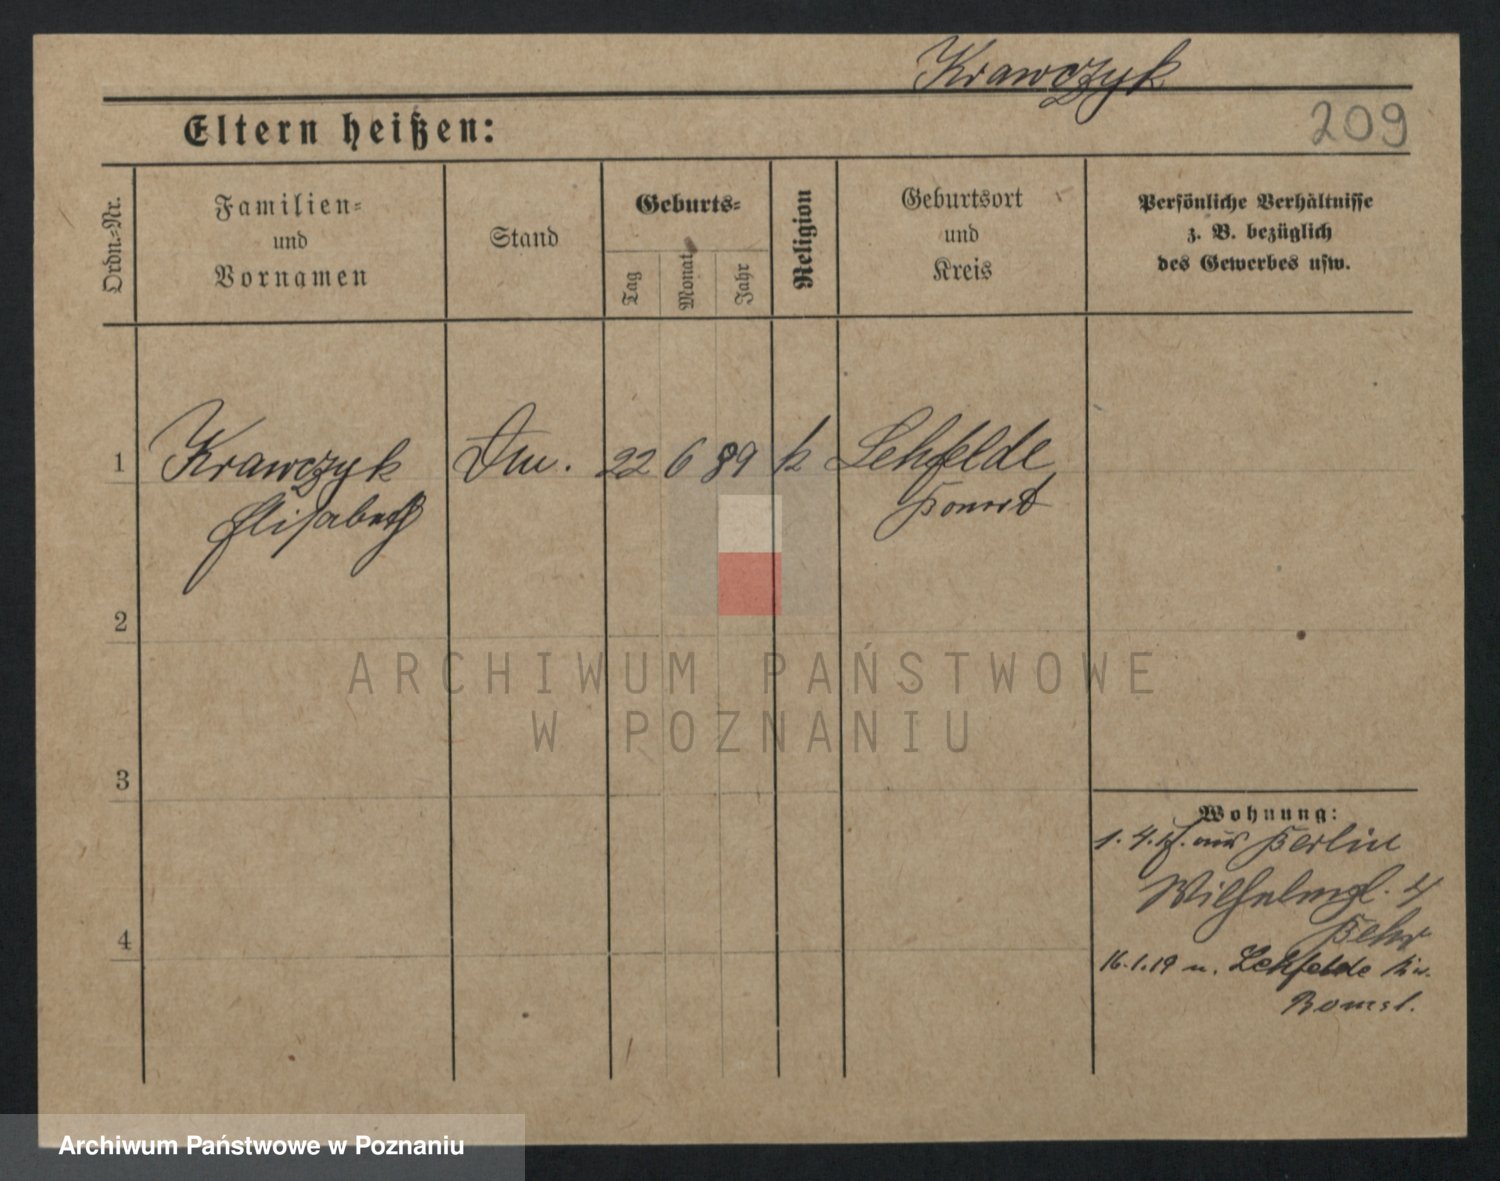 Krawczyk
209
Eltern heißen:
Ordn.-Nr.
Familien-
und
Vornamen
Stand
Geburts-
Tag
Monat
Jahr
Religion
Geburtsort
und
Kreis
Persönliche Verhältnisse
z. B. bezüglich
des Gewerbes usw.
1 Krawczyk 22 6 89 k Lehfelde
Elisabeth Bomst
2
3
4
Wohnung:
1. 4. aus Berlin
Wilhelmpl. 4
16.1.19 n. Lehfelde Kr.
Bomst.
ARCHIWUM PAŃSTWOWE
W POZNANIU
Archiwum Państwowe w Poznaniu